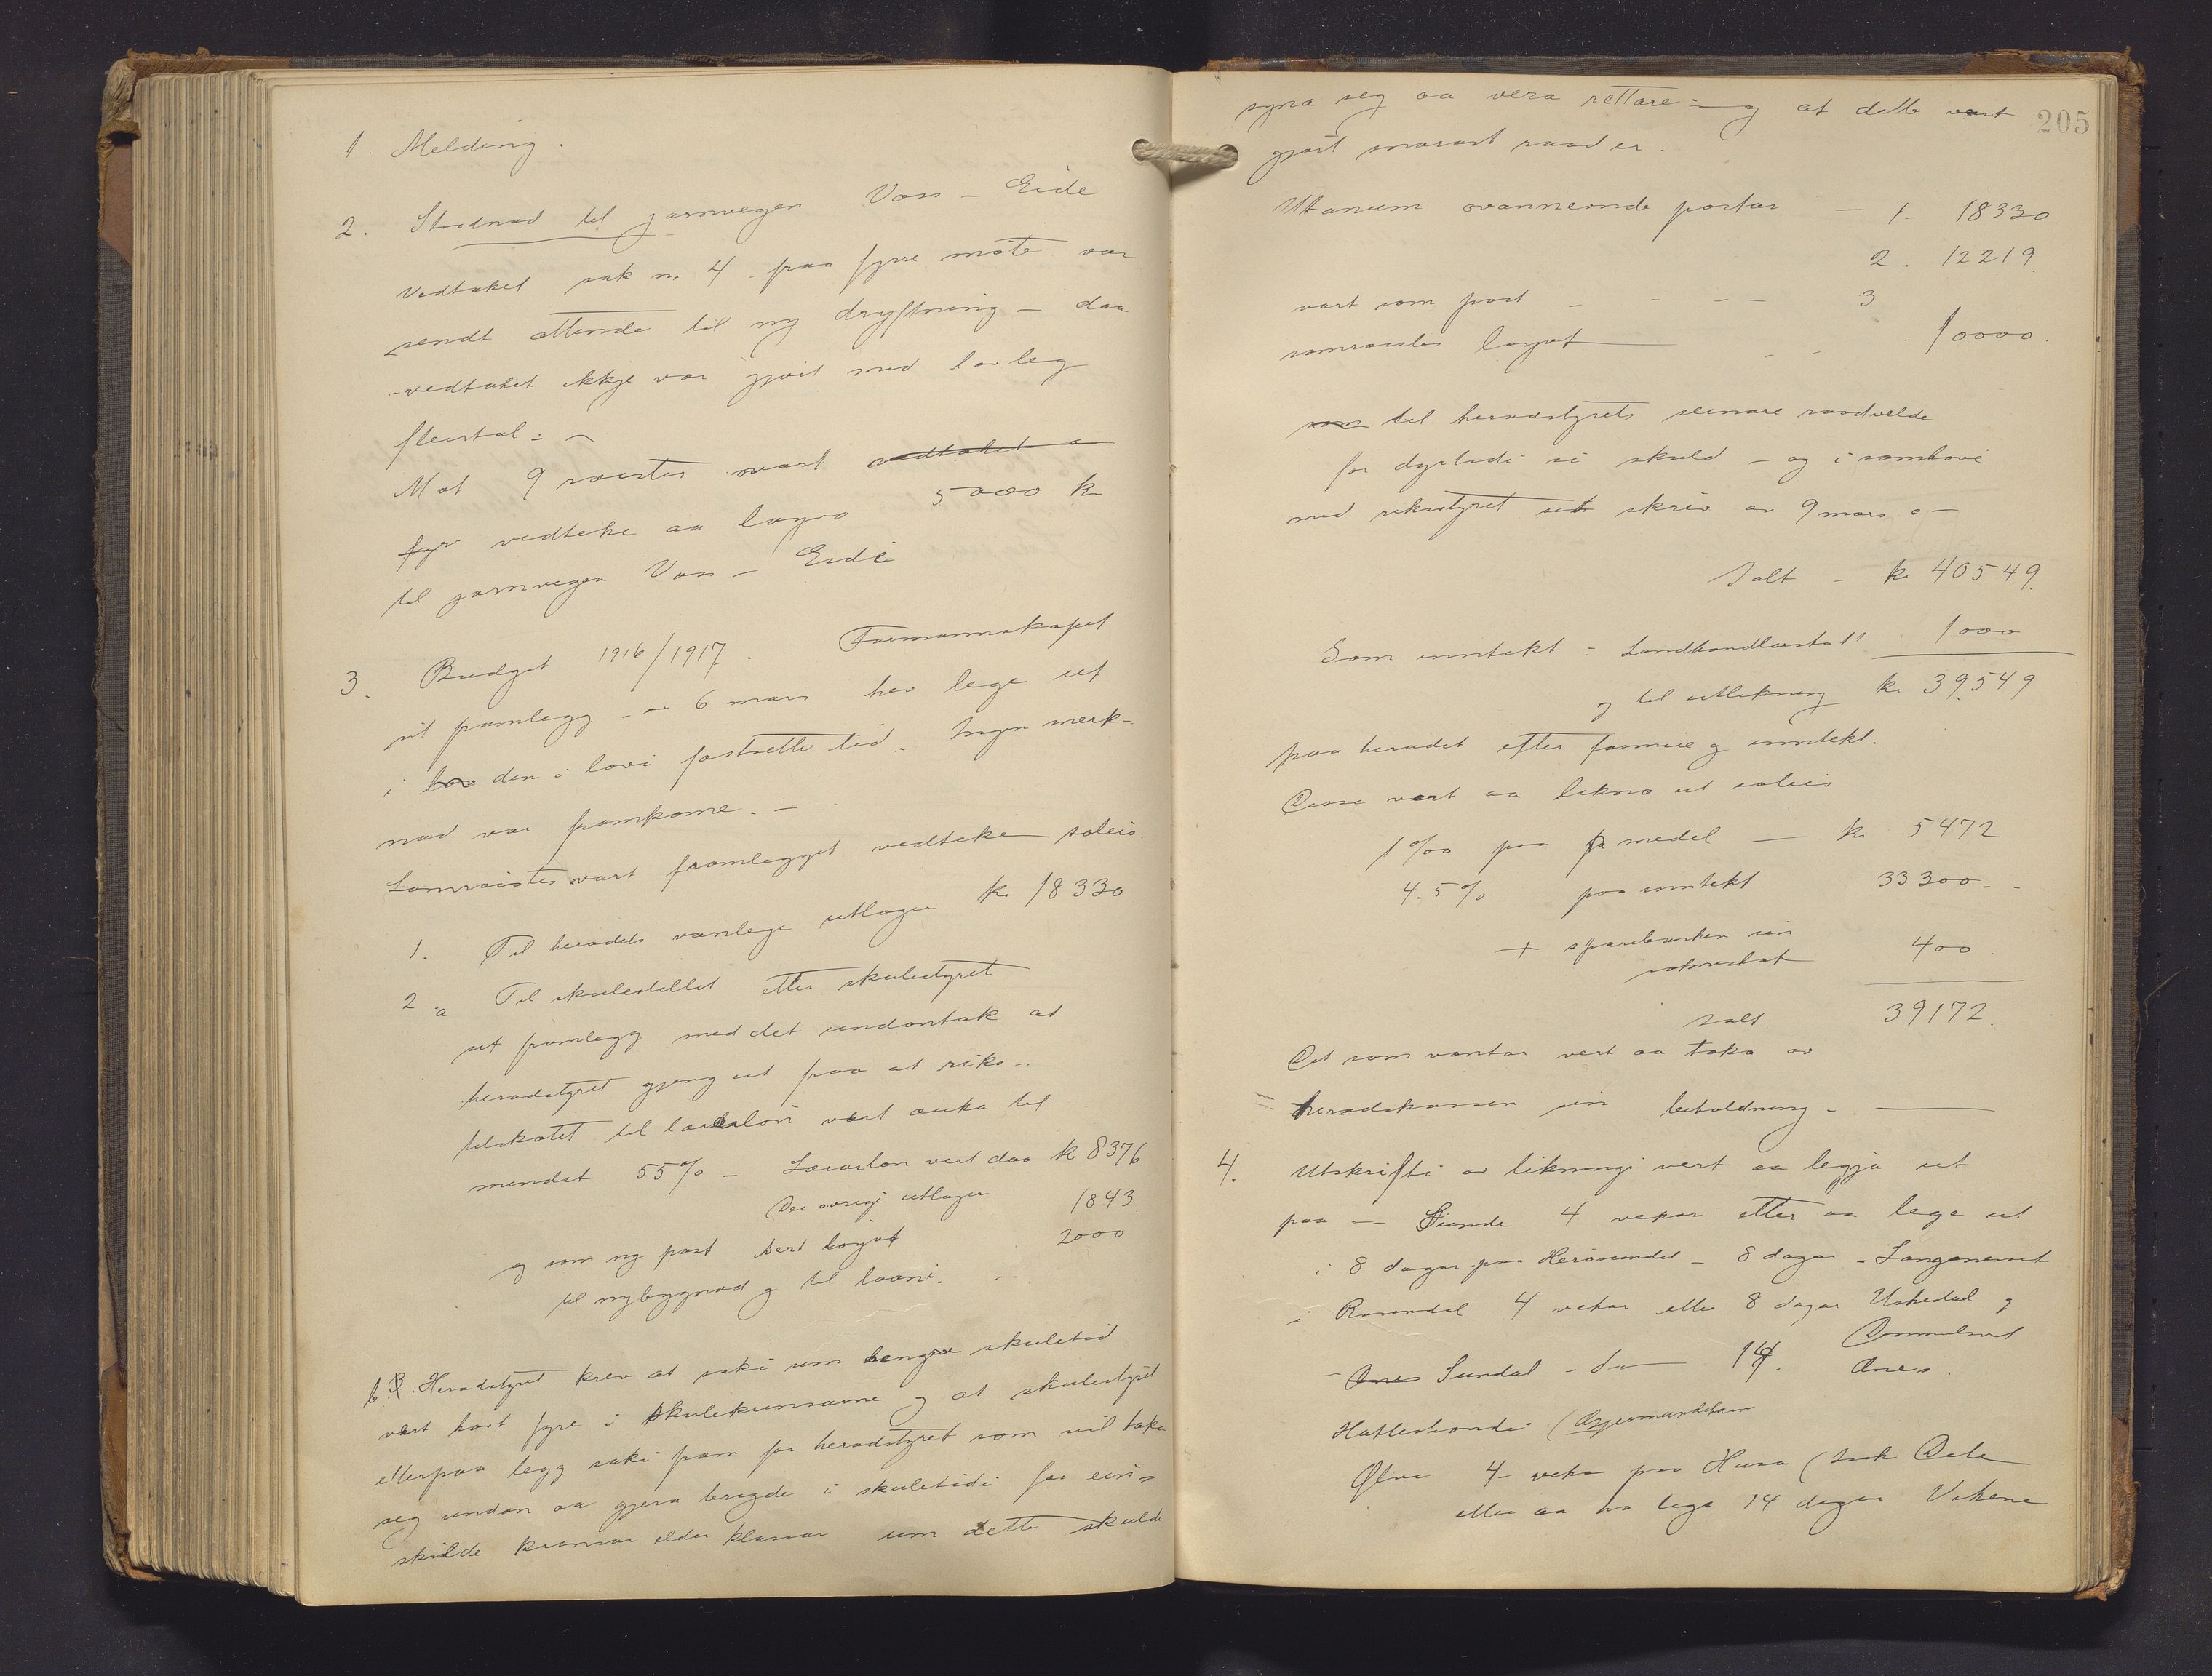 1. Melding.
2. Studnad til jarnvegen Voss – Eide
Vedtaket sak nr. 4 paa fyrre møte var
sendt attende til ny dryftning – daa
vedtaket ikkje var gjort med lovleg
fleirtal. –
Mot 9 røister vart vedtaket a
fyr vedteke aa løyva 5000 kr
til jarnvegen Voss – Eide
3. Budget 1916/1917. Formannskapet
sit framlegg – 6 mars hev lege ut
i lov den i lovi fastsette tid. Ingen merk-
nad var framkome. –
Samrøistes vart framlegget vedteke soleis.
1. Til heradets vanlege utlogur kr 18330
2 a Til skulestellet etter skulestyret
sit framlegg med det undantak at
heradstyret gjeng ut fraa at riks-
tilskotet til lærarløn vert auka til
mindst 55% – Lærarløn vert daa kr 8376
Dei øvrige utlogur 1843
og som ny post vert løyvt 2000
til nybygnad og til laani.
b. Heradstyret krev at saki um lengre skuletid
vert havt fyre i skulekrinsarne og at skulestyret
etterpaa legg saki fram for heradstyret som vil taka
seg undan aa gjera brigde i skuletidi for ein-
skilde krinsar elder klassar um dette skulde
205
syna seg aa vera rettare – og at dette vert
gjort snarast raad er.
Utanum ovannemnde postar – 1 – 18330
2. 12219
vart som post – – – – 3
samrøistes løyvt 10000.
som til heradstyrets seinare raadvelde
for dyrtidi si skuld – og i samhøve
med riksstyret sit skriv av 9 mars. –
Ialt – kr 40549
Som inntekt : Landhandlarskatt 1000
og til utlikning kr 39549
paa heradet etter formue og inntekt.
Desse vert aa likna ut soleis
1 ‰ paa fr medel – kr 5472
4.5% paa inntekt 33300 –
+ sparebanken sin
skatt 400
Ialt 39172.
Det som vantar vert aa taka av
heradskassen sin behaldning –
4. Utskrifti av likningi vert aa leggja ut
paa – Sunde 4 vekor etter aa lege ut
i 8 dagar paa Herøsundet – 8 dagar – Langeneset
i Rosendal 4 vekor etter 8 dagar Uskedal og
Dimmelsvik
– Ænes Sundal – do – 14. Ænes.
Hatlestrandi (Gjermundshavn
Ølve 4 veko paa Husa (
etter aa ha lege 14 dagar Vikene